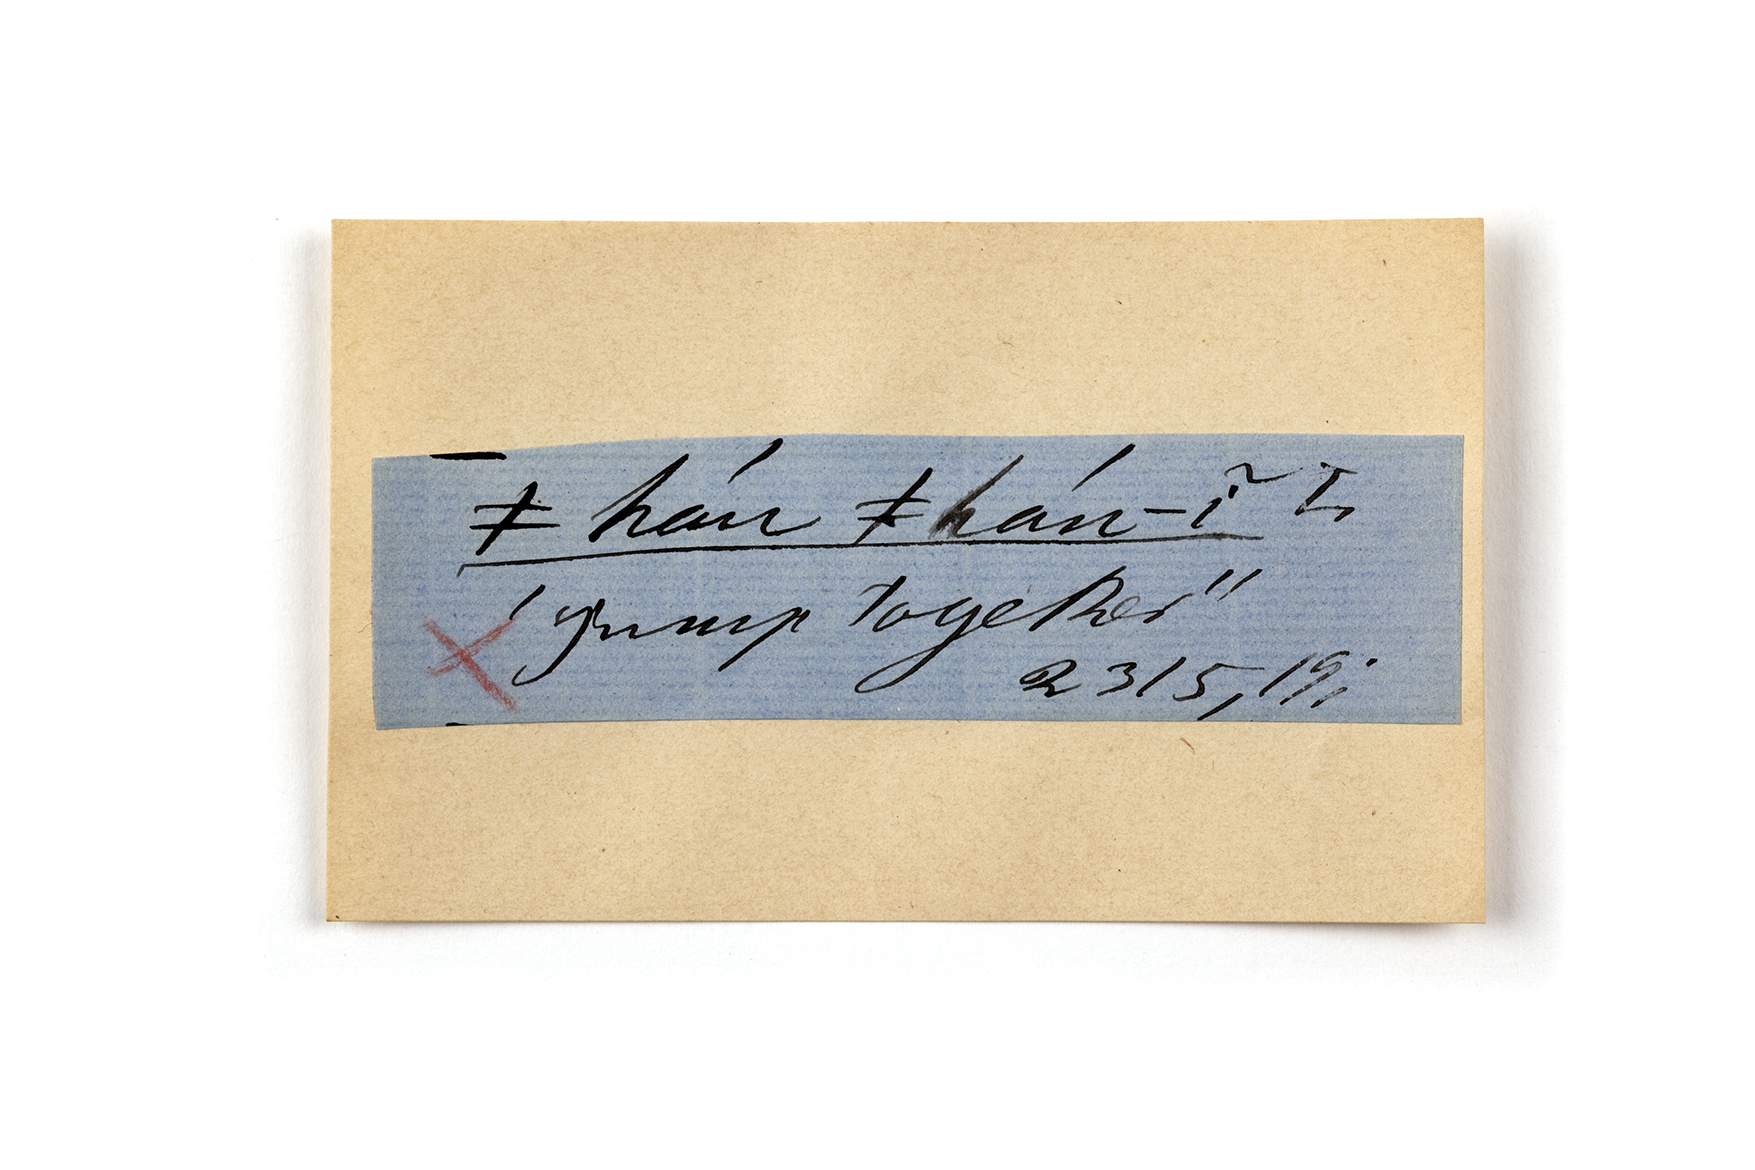 ǂhán ǂhán-ĩ I,
"jump together"
2315, 19;